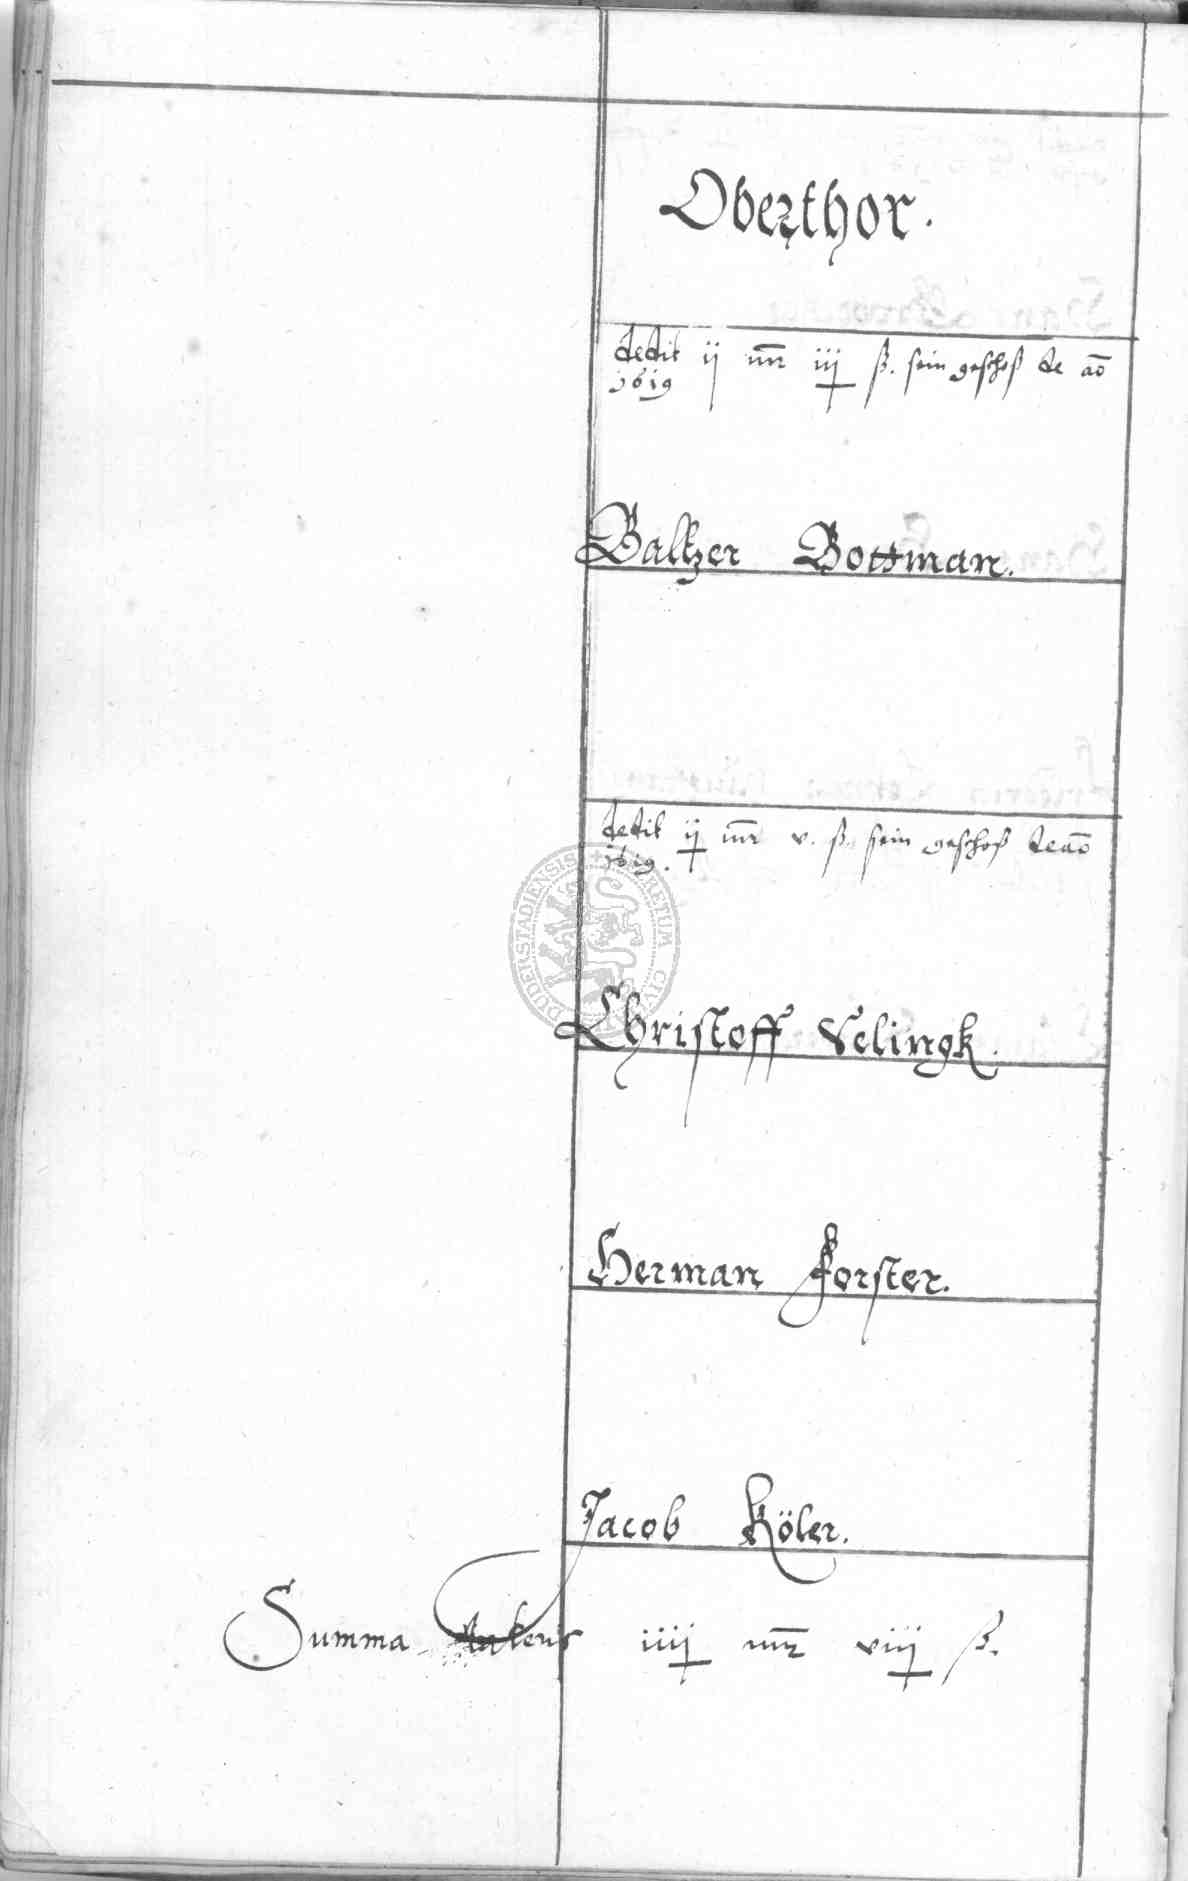 Oberthor.
dedit ij mr iij ß. sein geschoß de ao
1619
Baltzer Bottman.
dedit ij mr v. ß. sein geschoß de ao
1619.
DUDERSTADIENSIS
Christoff Velingk.
Herman Forster.
Jacob Köler.
Summa iiij mr viij ß.